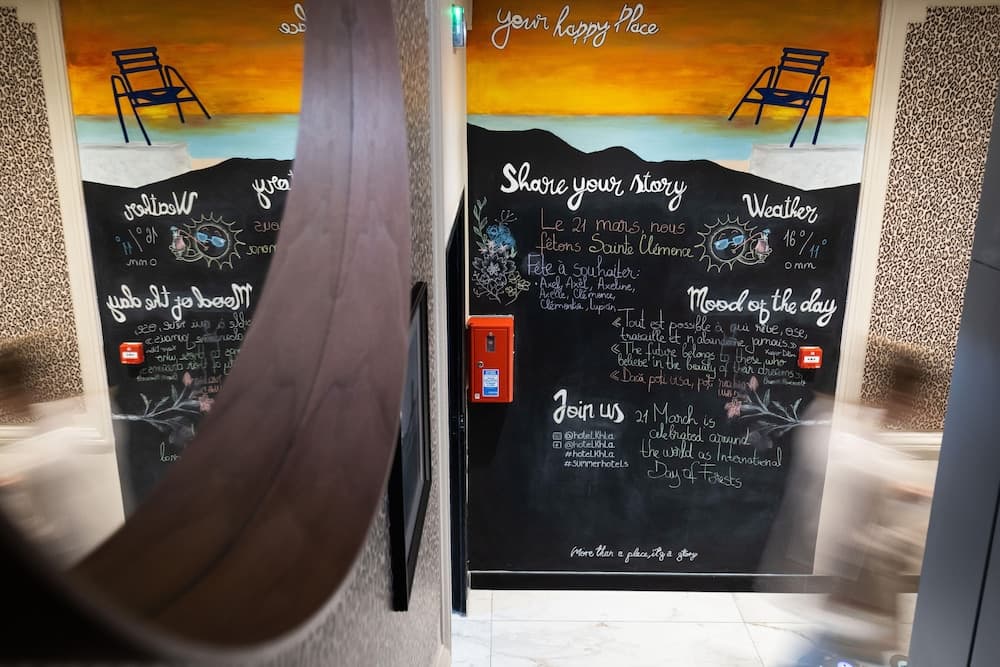 Your happy Place
Share your story
Le 21 mars, nous
fêtons Sainte Clémence
Fête à souhaiter:
• Axel, Axèl, Axeline,
Axelle, Clémence,
Clémentia, Lupin.
Weather
16°/11°
mm
Mood of the day
«Tout est possible à qui rêve, ose,
travaille et n'abandonne jamais»
«The future belongs to those who
believe in the beauty of their dreams»
«Dacă poți visa, poți
Join us
@hotelKhla
@hotelKhla
#hotelKhla
#summerhotels
21 March is
celebrated around
the world as International
Day of Forests
More than a place, it's a story